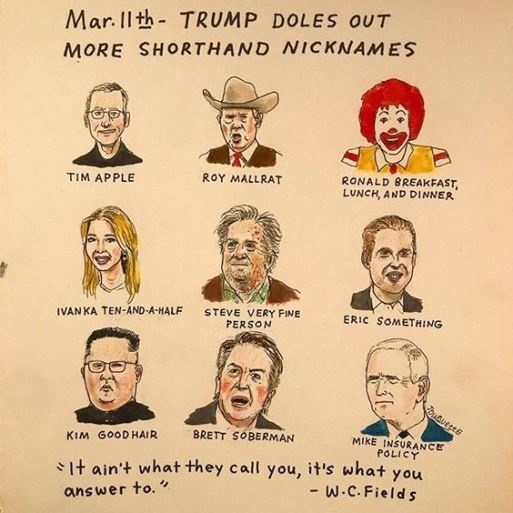 Mar. 11th - TRUMP DOLES OUT
MORE SHORTHAND NICKNAMES
TIM APPLE
ROY MALLRAT
RONALD BREAKFAST,
LUNCH, AND DINNER
IVANKA TEN-AND-A-HALF
STEVE VERY FINE
PERSON
ERIC SOMETHING
KIM GOODHAIR
BRETT SOBERMAN
MIKE INSURANCE
POLICY
DUQUESTE
"It ain't what they call you, it's what you
answer to."
- W.C. Fields